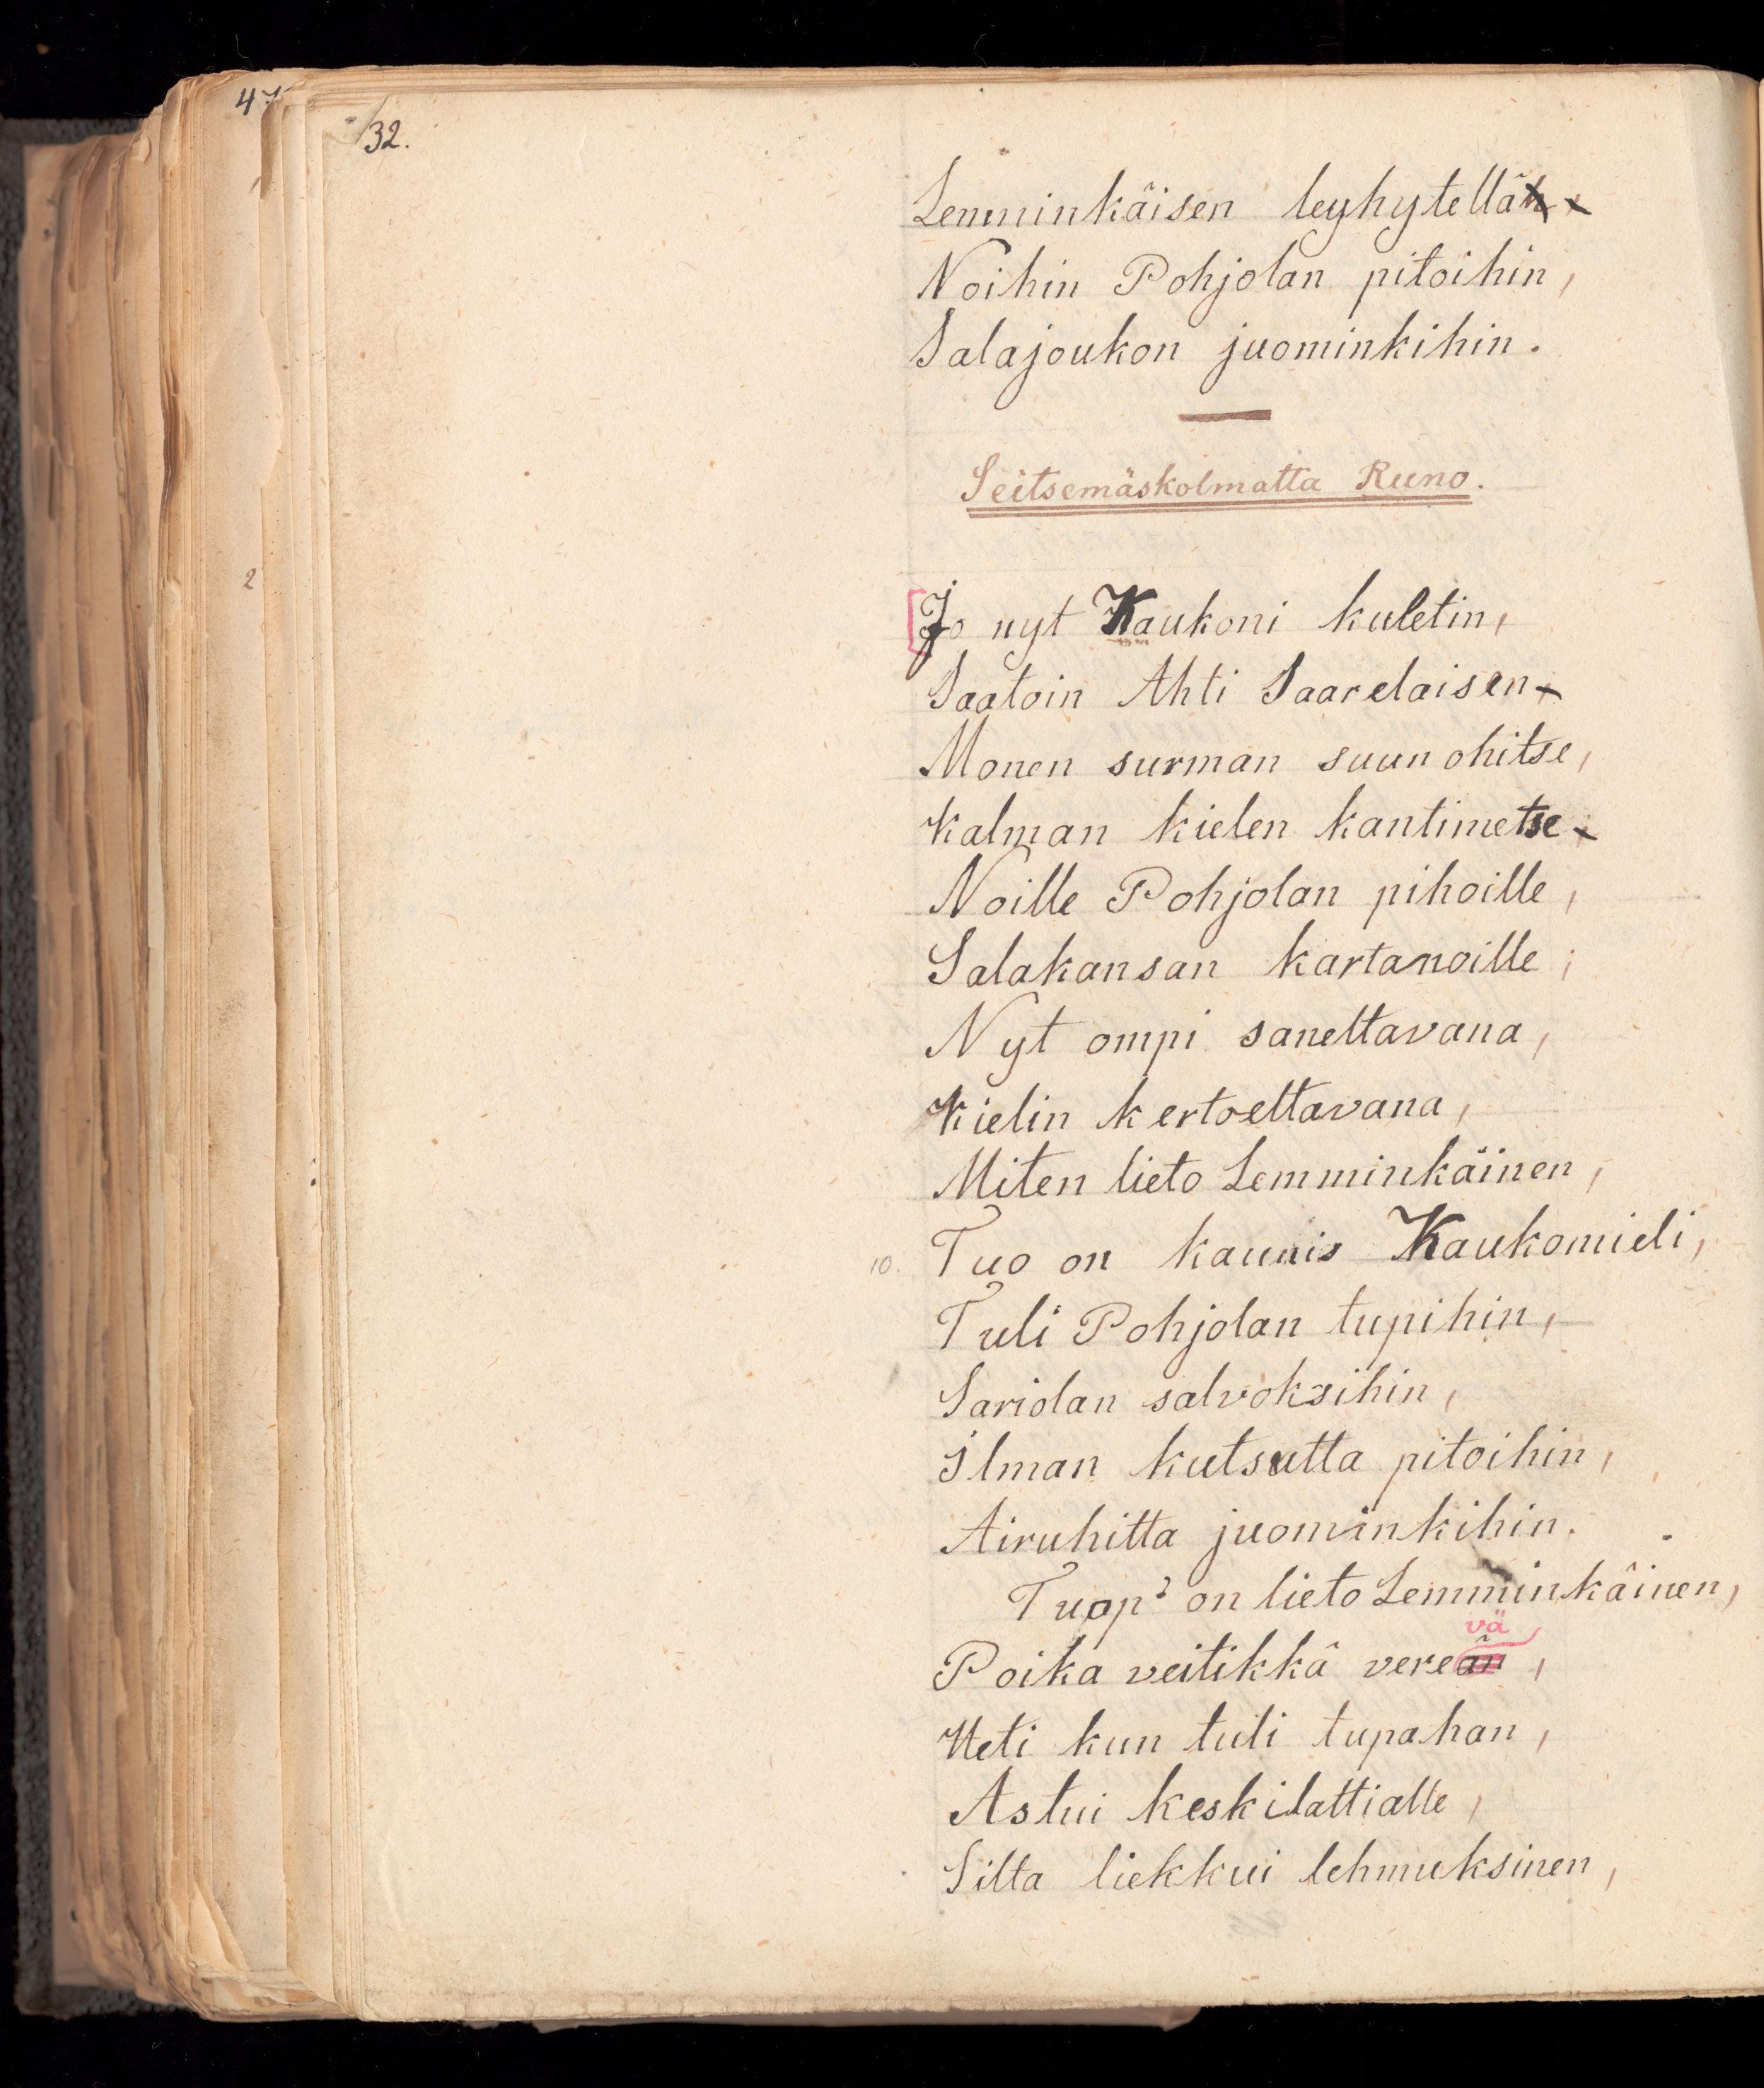 47
32.
Lemminkäisen leyhytellä
Noihin Pohjolan pitoihin,
Salajoukon juominkihin.
Seitsemäskolmatta Runo.
Jo nyt Kaukoni kuletin,
Saatoin Ahti Saarelaisen
Monen surman suun ohitse,
Kalman kielen kantimetse
Noille Pohjolan pihoille,
Salakansan kartanoille;
2
Nyt ompi sanettavana,
Kielin kertoettavana,
Miten lieto Lemminkäinen,
10. Tuo on kaunis Kaukomieli,
Tuli Pohjolan tupihin,
Sariolan salvoksihin,
Ilman kutsutta pitoihin,
Airuhitta juominkihin.
Tuop' on lieto Lemminkäinen,
vä
Poika veitikkä vereän,
Heti kun tuli tupahan,
Astui keskilattialle,
Silta liekkui lehmuksinen,